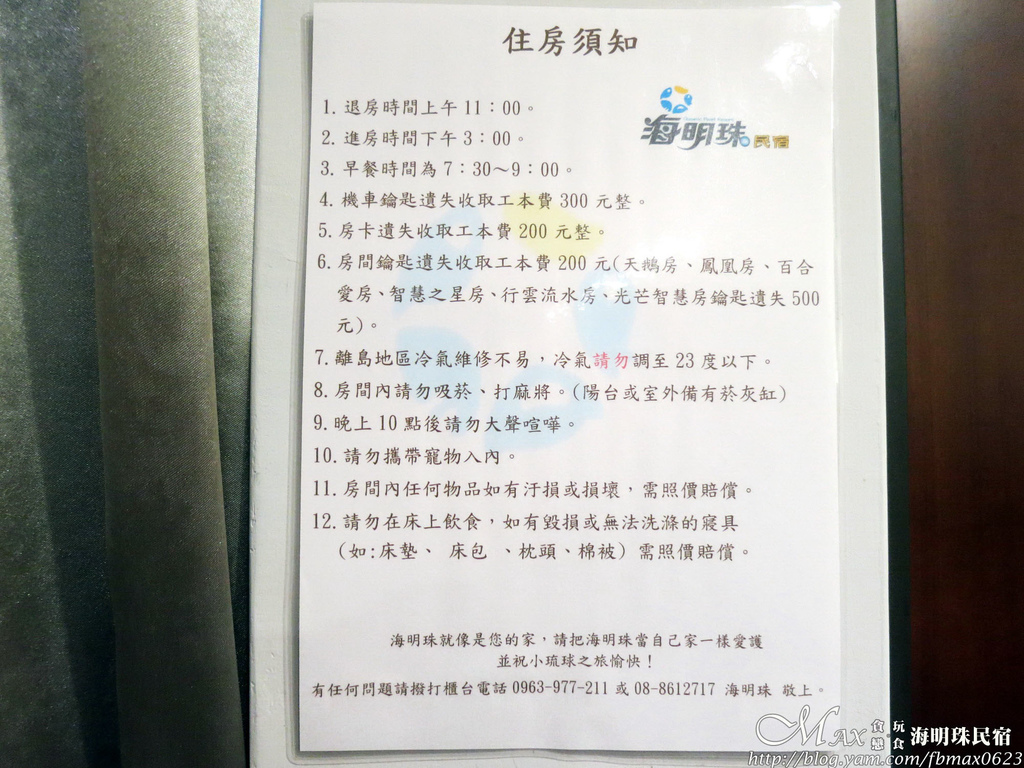 住房須知
海明珠民宿
1. 退房時間上午 11：00。
2. 進房時間下午 3：00。
3. 早餐時間為 7：30～9：00。
4. 機車鑰匙遺失收取工本費 300 元整。
5. 房卡遺失收取工本費 200 元整。
6. 房間鑰匙遺失收取工本費 200 元(天鵝房、鳳凰房、百合
愛房、智慧之星房、行雲流水房、光芒智慧房鑰匙遺失 500
元)。
7. 離島地區冷氣維修不易，冷氣請勿調至 23 度以下。
8. 房間內請勿吸菸、打麻將。(陽台或室外備有菸灰缸)
9. 晚上 10 點後請勿大聲喧嘩。
10. 請勿攜帶寵物入內。
11. 房間內任何物品如有汙損或損壞，需照價賠償。
12. 請勿在床上飲食，如有毀損或無法洗滌的寢具
(如:床墊、 床包 、枕頭、棉被) 需照價賠償。
海明珠就像是您的家，請把海明珠當自己家一樣愛護
並祝小琉球之旅愉快！
有任何問題請撥打櫃台電話 0963-977-211 或 08-8612717 海明珠 敬上。
Max 貪戀 玩食 海明珠民宿
http://blog.yam.com/fbmax0623